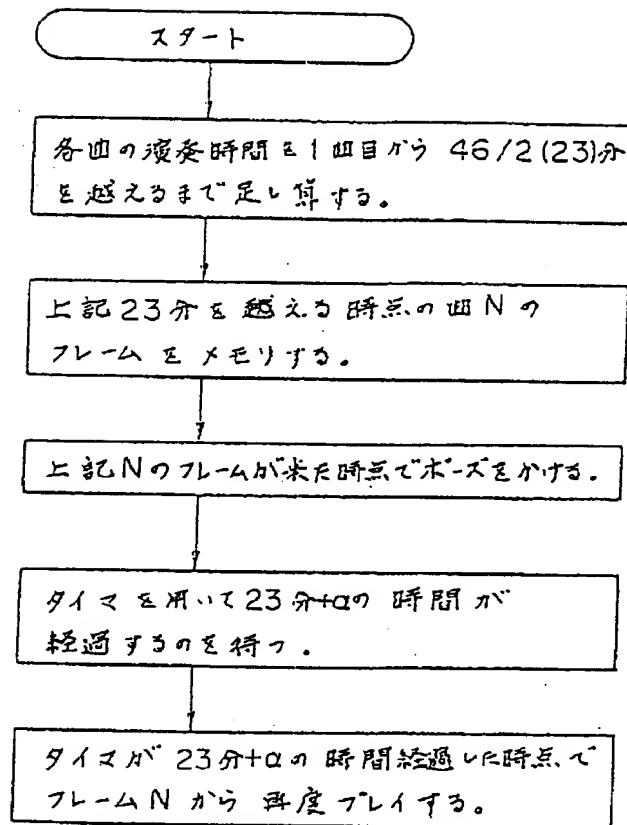 スタート
各曲の演奏時間を1曲目から 46/2(23)分
を越えるまで足し算する。
上記23分を越える時点の曲Nの
フレームをメモリする。
上記Nのフレームが来た時点でポーズをかける。
タイマを用いて23分+αの時間が
経過するのを待つ.
タイマが23分+αの時間経過した時点で
フレームNから再度プレイする。